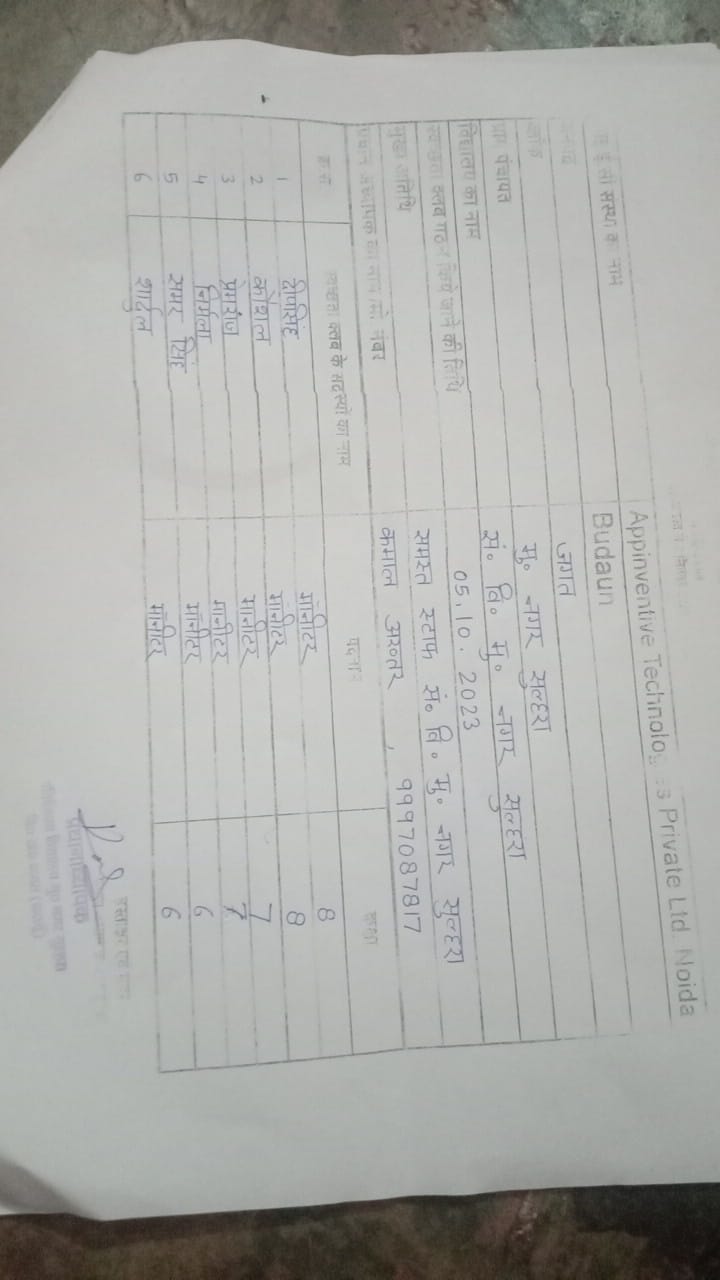 संस्था का नाम Appinventive Technologies Private Ltd. Noida
Budaun
जगत
पंचायत मु० नगर सुल्हरा
विद्यालय का नाम सं० वि० मु० नगर सुल्हरा
स्वच्छता क्लब गठन किये जाने की तिथि 05.10.2023
मुख्य अतिथि समस्त स्टाफ सं० वि० मु० नगर सुल्हरा
प्रधान अध्यापक का नाम मो. नंबर कमाल अख्तर, 9997087817
स्वच्छता क्लब के सदस्यों का नाम पदनाम कक्षा
1 मॉनीटर 8
2 कौशल मॉनीटर 8
3 प्रेमराज मॉनीटर 7
4 निर्मला मॉनीटर 7
5 समर सिंह मॉनीटर 6
6 शार्दुल मॉनीटर 6
प्रधानाध्यापक